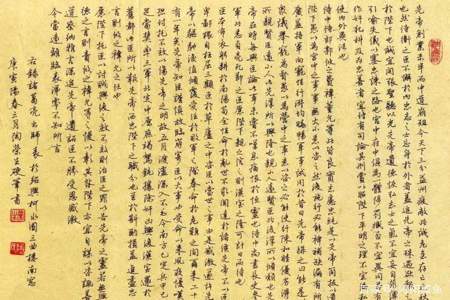 先帝創業未半而中道崩殂今天下三分益州疲敝此誠危急存亡之秋
也然侍衛之臣不懈於內忠志之士忘身於外者蓋追先帝之殊遇欲報之
於陛下也誠宜開張聖聽以光先帝遺德恢弘志士之氣不宜妄自菲薄
引喻失義以塞忠諫之路也宮中府中俱為一體陟罰臧否不宜異同若有
作奸犯科及為忠善者宜付有司論其刑賞以昭陛下平明之理不宜偏私
使內外異法也
侍中侍郎郭攸之費禕董允等此皆良實志慮忠純是以先帝簡拔以遺
陛下愚以為宮中之事事無大小悉以咨之然後施行必能裨補闕漏有所
廣益將軍向寵性行淑均曉暢軍事試用於昔日先帝稱之曰能是以
眾議舉寵為督愚以為營中之事悉以咨之必能使行陣和睦優劣得
所親賢臣遠小人此先漢所以興隆也親小人遠賢臣此後漢所以傾頹也先
帝在時每與臣論此事未嘗不歎息痛恨於桓靈也侍中尚書長史參
軍此悉貞良死節之臣願陛下親之信之則漢室之隆可計日而待也
臣本布衣躬耕於南陽苟全性命於亂世不求聞達於諸侯先帝不以臣
卑鄙猥自枉屈三顧臣於草廬之中咨臣以當世之事由是感激遂許先
帝以驅馳後值傾覆受任於敗軍之際奉命於危難之間爾來二十
有一年矣先帝知臣謹慎故臨崩寄臣以大事也受命以來夙夜憂歎恐
託付不效以傷先帝之明故五月渡瀘深入不毛今南方已定兵甲已
足當獎率三軍北定中原庶竭駑鈍攘除奸凶興復漢室還於
舊都此臣所以報先帝而忠陛下之職分也至於斟酌損益進盡忠
言則攸之禕允之任也
願陛下託臣以討賊興復之效不效則治臣之罪以告先帝之靈若無興
德之言則責攸之禕允等之慢以彰其咎陛下亦宜自謀以咨諏善
道察納雅言深追先帝遺詔臣不勝受恩感激
今當遠離臨表涕零不知所言
右錄諸葛亮出師表於紹興柯水園三曲樓南窗
庚寅陽春三月陶榮生硬筆書